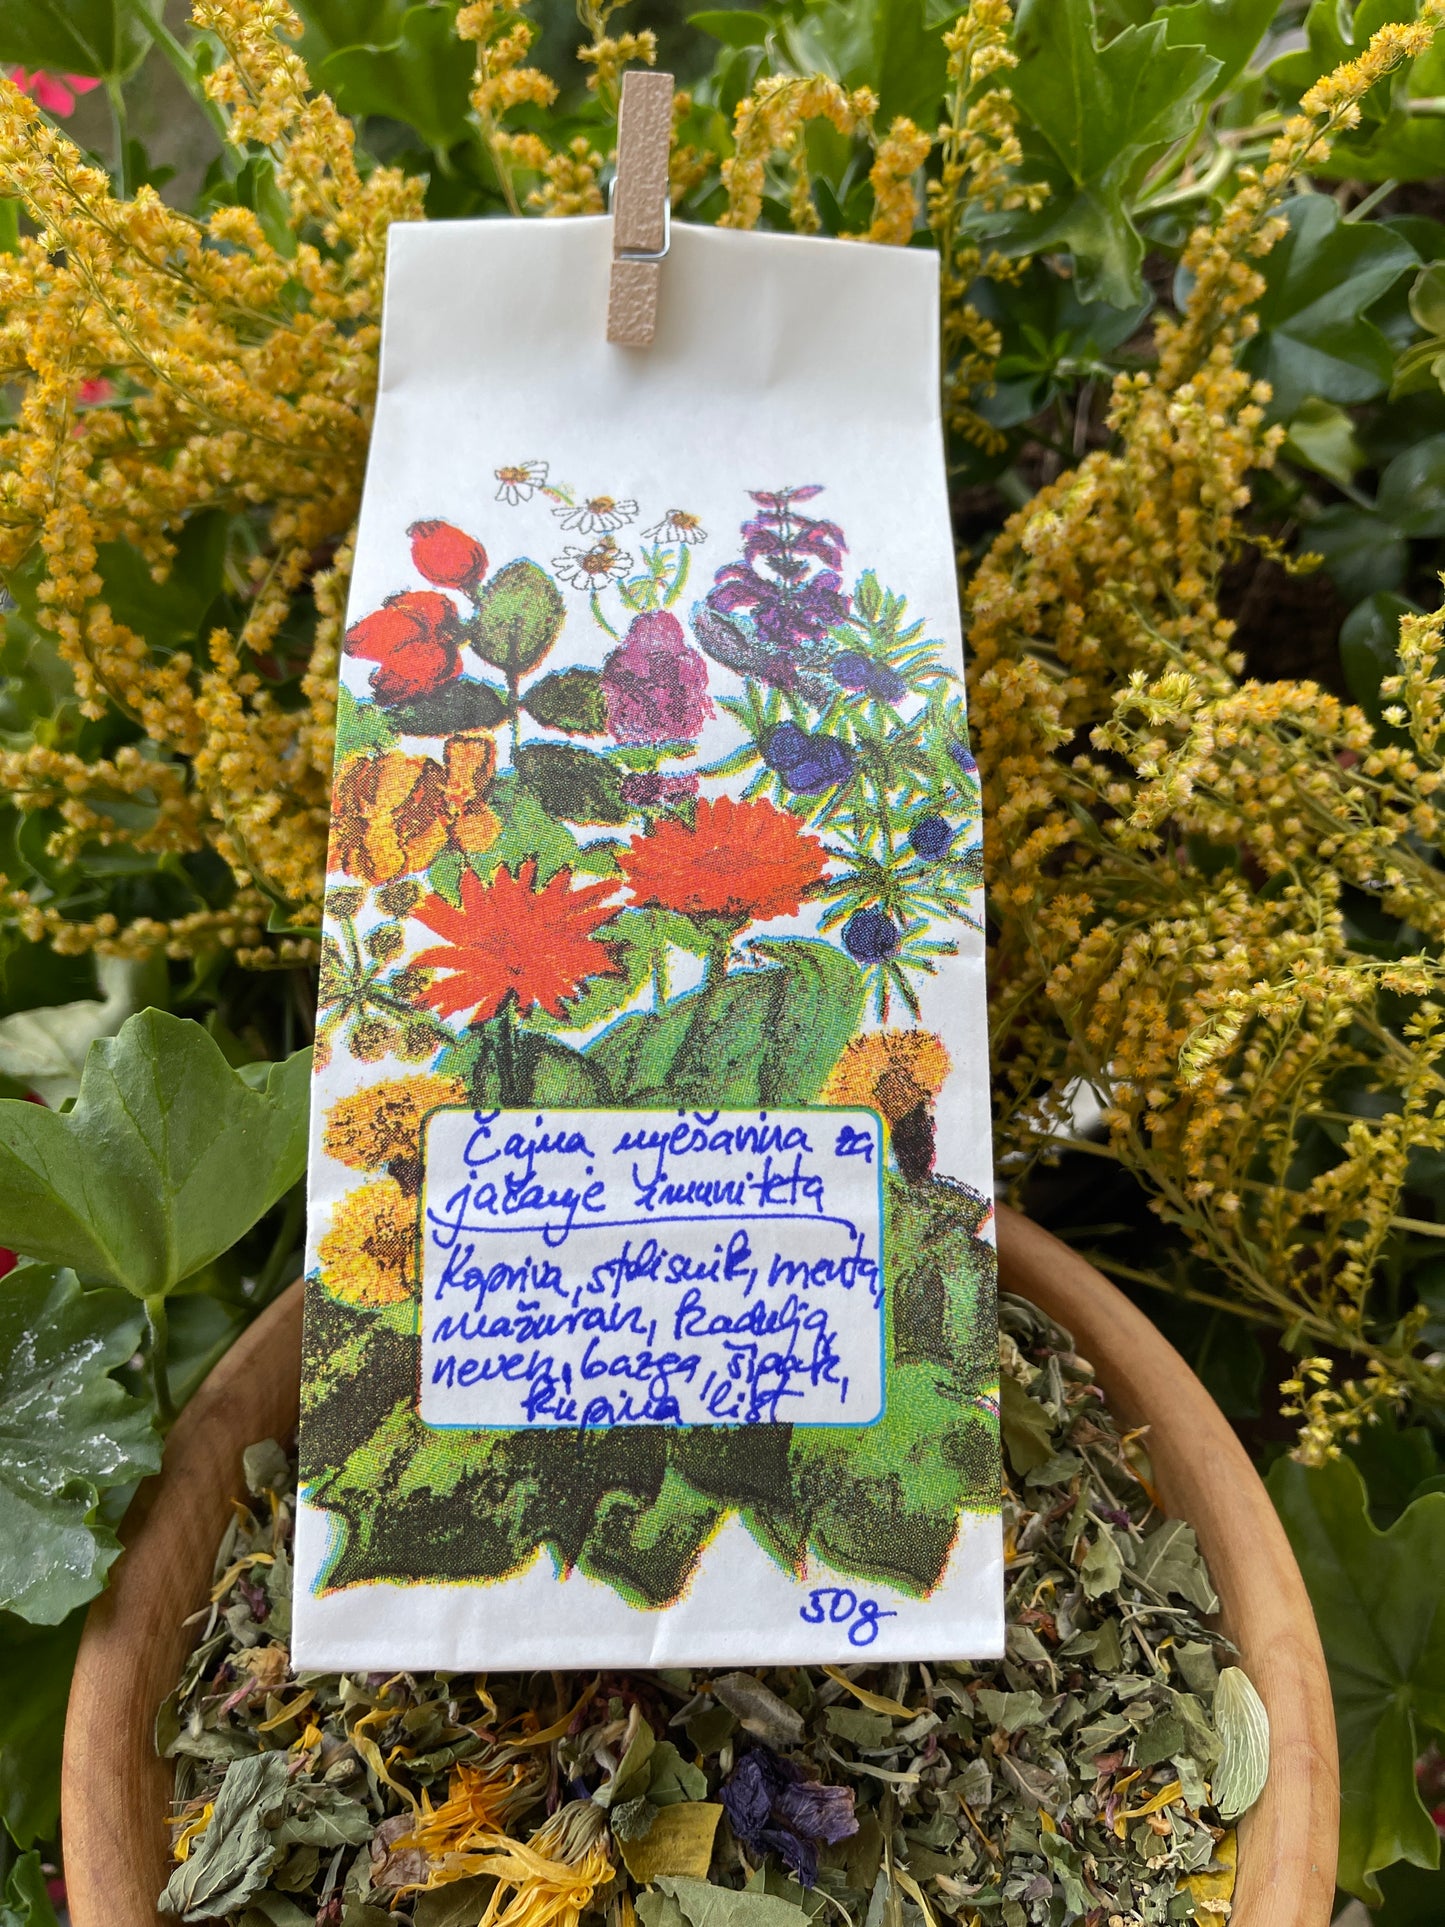 Čajna mješavina za
jačanje imuniteta
Kopriva, stolisnik, menta,
mažuran, kadulja,
neven, bazga, šipak,
kupina list
50g